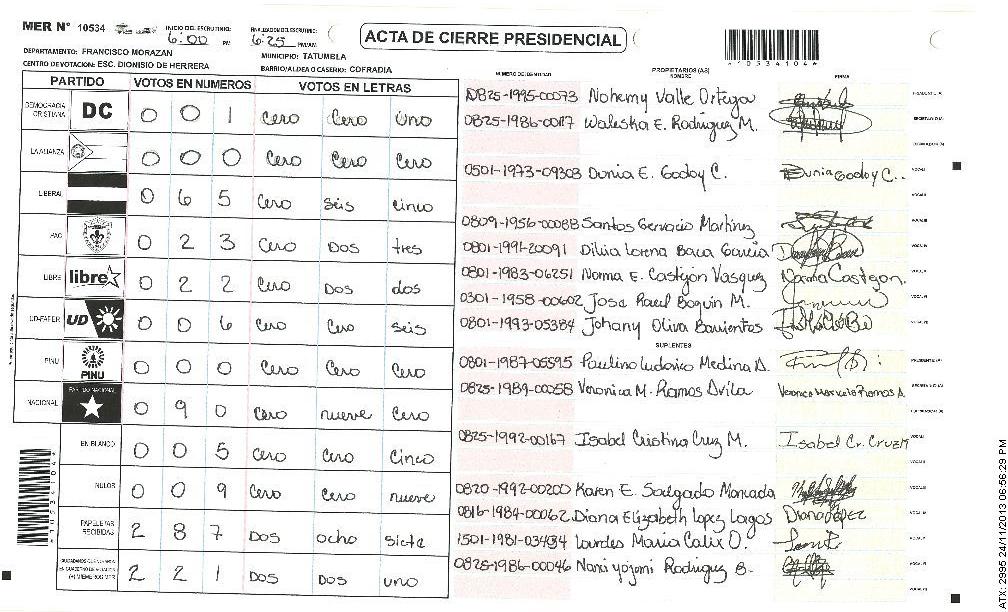 MER Nº 10534
INICIO DEL ESCRUTINIO: 6:00 PM
FINALIZACION DEL ESCRUTINIO: 6:25 PM/AM
ACTA DE CIERRE PRESIDENCIAL
*10534104*
DEPARTAMENTO: FRANCISCO MORAZAN
MUNICIPIO: TATUMBLA
CENTRO DE VOTACION: ESC. DIONISIO DE HERRERA
BARRIO/ALDEA O CASERIO: COFRADIA
PARTIDO VOTOS EN NUMEROS VOTOS EN LETRAS
DEMOCRACIA CRISTIANA DC 0 0 1 Cero Cero Uno
LA ALIANZA 0 0 0 Cero Cero Cero
LIBERAL 0 6 5 Cero seis cinco
PAC 0 2 3 Cero Dos tres
LIBRE libre 0 2 2 Cero Dos dos
UD-FAPER UD 0 0 6 Cero Cero seis
PINU PINU 0 0 0 Cero Cero Cero
NACIONAL PARTIDO NACIONAL 0 9 0 Cero nueve Cero
EN BLANCO 0 0 5 Cero Cero Cinco
NULOS 0 0 9 Cero Cero nueve
PAPELETAS RECIBIDAS 2 8 7 Dos ocho siete
2 2 1 Dos Dos uno
NUMERO DE IDENTIDAD PROPIETARIOS (AS) NOMBRE FIRMA
0825-1995-00073 Nohemy Valle Ortega
0825-1986-00117 Waleska E. Rodriguez M.
0501-1973-09303 Dunia E. Godoy C. Dunia Godoy C.
0809-1956-00088 Santos Gervacio Martinez
0801-1991-20091 Dilcia Lorena Baca Garcia
0801-1983-06251 Norma E. Castejon Vasquez Norma Castejon.
0301-1958-00602 Jose Raul Boquin M.
0801-1993-05384 Johany Oliva Barrientos
SUPLENTES
0801-1987-05595 Paulino Ludovico Medina A.
0825-1989-00058 Veronica M. Ramos Avila Veronica Marcela Ramos A.
0825-1992-00167 Isabel Cristina Cruz M. Isabel Cr. Cruz M
0820-1992-00200 Karen E. Salgado Moncada
0816-1984-00062 Diana Elizabeth Lopez Lagos Diana Lopez
1501-1981-03434 Lourdes Maria Calix O.
0825-1986-00046 Nani yojani Rodriguez B.
ATX: 2995 24/11/2013 06:56:29 PM